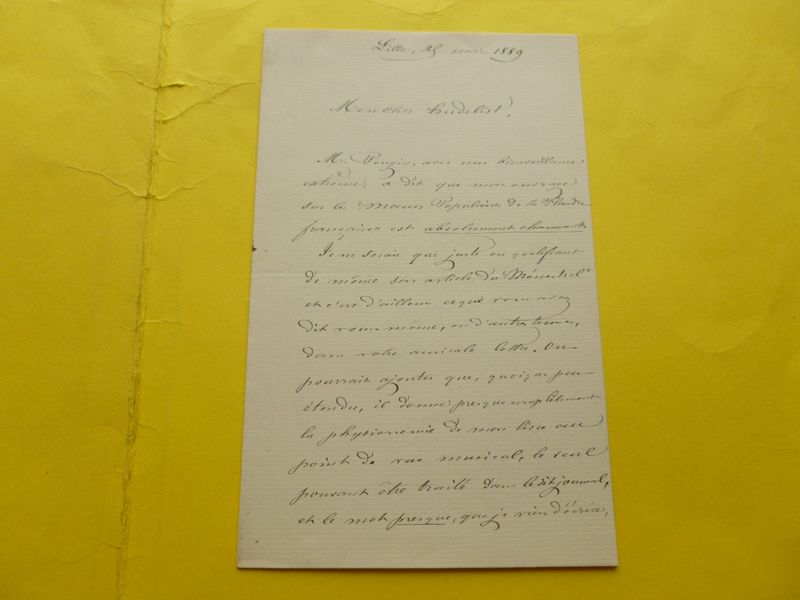 Lille, 25 mars 1889
Mon cher hudelist,
M. Pougin, avec une bienveillance
extrême, a dit que mon ouvrage
sur les Moeurs Populaires de la Flandre
française est absolument charmant.
Je ne serais que juste en qualifiant
de même son article du "Ménestrel"
et c'est d'ailleurs ce que vous avez
dit vous même, en d'autres termes,
dans votre amicale lettre. On
pourrait ajouter que, quoique peu
étendu, il donne presque complètement
la physionomie de mon livre au
point de vue musical, le seul
pouvant être traité dans le dit journal,
et le mot presque, que je viens d'écrire,